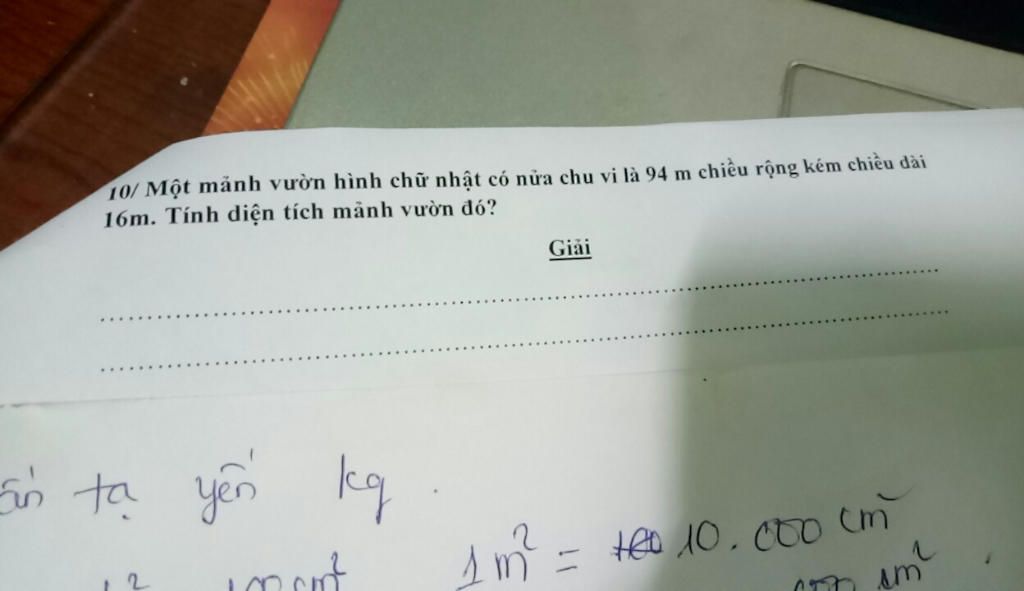 10/ Một mảnh vườn hình chữ nhật có nửa chu vi là 94 m chiều rộng kém chiều dài
16m. Tính diện tích mảnh vườn đó?
Giải
tạ yến kg
1m² = 10.000 cm²